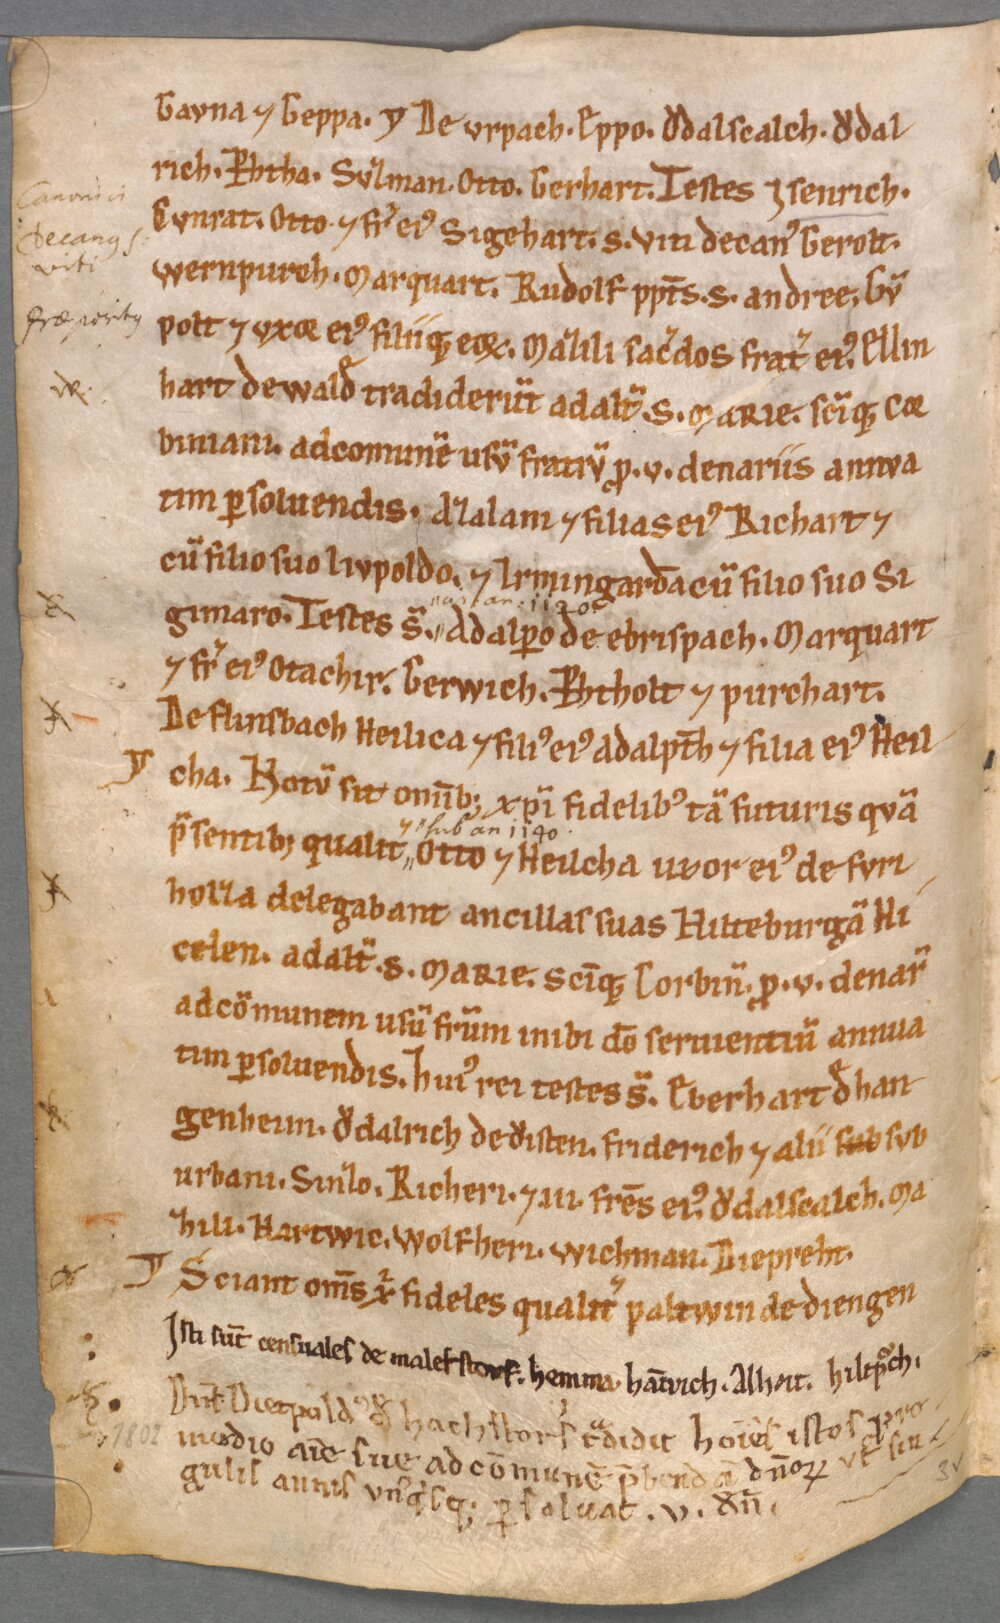 Gavna ⁊ Geppa. ⁊ De vrpach. Eppo. Ǒdalscalch. Ǒdal
rich. Phtha. Svͦlman. Otto. Gerhart. Testes Isenrich.
Canonici
Cvnrat. Otto. ⁊ fr̄ ei9 Sigehart. s. viti decan9 Gerolt.
Decanus S.
viti
wernpurch. Marquart. Rudolf pp̄ts. s. andree. Gv̄
præpositus
polt ⁊ vxor ei9 filiiq; eor̄. Mahtili sac̄dos frat̄ ei9. Ellin
hart de wald tradider̄t ad alt̄. s. MARIE. sc̄iq; Cor
biniani. ad comunē usv̄ fratrv̄ p. v. denariis annva
tim p̱soluendis. Alalam ⁊ filias ei9 Richart ⁊
cū filio suo livpoldo. ⁊ Irmingardā cū filio suo Si
an. 1120
gimaro. Testes s̄. Adalp̱o de ebrispach. Marquart
⁊ fr̄ ei9 Otachir. Gerwich. Phtholt ⁊ purchart.
De flinsbach Heilica ⁊ fili9 ei9 adalp̄th ⁊ filia ei9 Heil
cha. Notv̄ sit om̄ib; xp̄i fidelib9 tā futuris qvā
⁊ sub an 1140
p̄sentib; qualit̄ Otto ⁊ Heilcha uxor ei9 de fvri
holza delegabant ancillas suas Hitteburgā Hi
celen. ad alt̄. s. MARIE. sc̄iq; Corbin̄. p. v. denar̄
ad cōmunem usū fr̄um inibi dō seruientiū annua
tim p̱soluendis. Hui9 rei testes s̄. Eberhart d̄ han
genheim. Ǒdalrich de ǒisten. friderich ⁊ alii sub svb
urbani. Sintlo. Richeri. ⁊ iii. fr̄es ei9. Ǒdalscalch. Ma
htili. Hartwic. Wolfheri. Wichman. Diepreht.
Sciant om̄s xp̄i fideles qualit̄ paltwin de diengen
Isti sūt censuales de malekstorf. hemma. hātvich. Alheit. hiltp̱ch.
Dn̄s Dietpold9 d̄ hachstorf t̄didit hoīes istos pro
modio aīe sue ad cōmunē p̄bendā dn̄oꝝ vt sin
1802
gulis annis vn9q̄sq; p̱solvat. v. dn̄.
3v